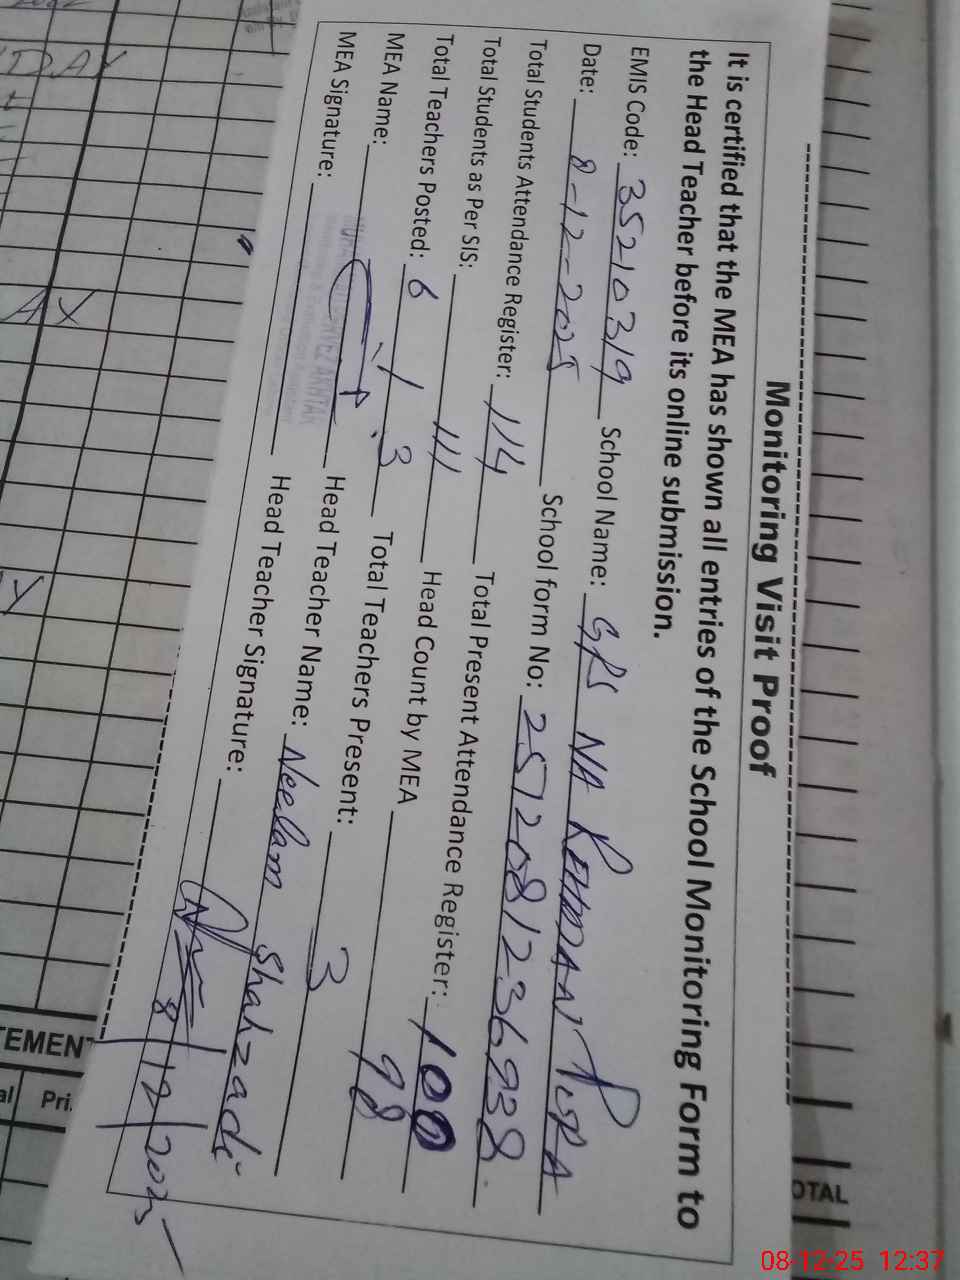 Monitoring Visit Proof
It is certified that the MEA has shown all entries of the School Monitoring Form to
the Head Teacher before its online submission.
EMIS Code: 35210319 School Name: GPS NA
Date: 8-12-2025 School form No: 2572081236938
Total Students Attendance Register: 114 Total Present Attendance Register: 100
Total Students as Per SIS: 111 Head Count by MEA 98
Total Teachers Posted: 6 / 3 Total Teachers Present: 3
MEA Name: Head Teacher Name: Neelam Shahzadi
MEA Signature: Head Teacher Signature:
8/12/2025
AX
OTAL
TEMENT
al Pri.
08-12-25 12:37